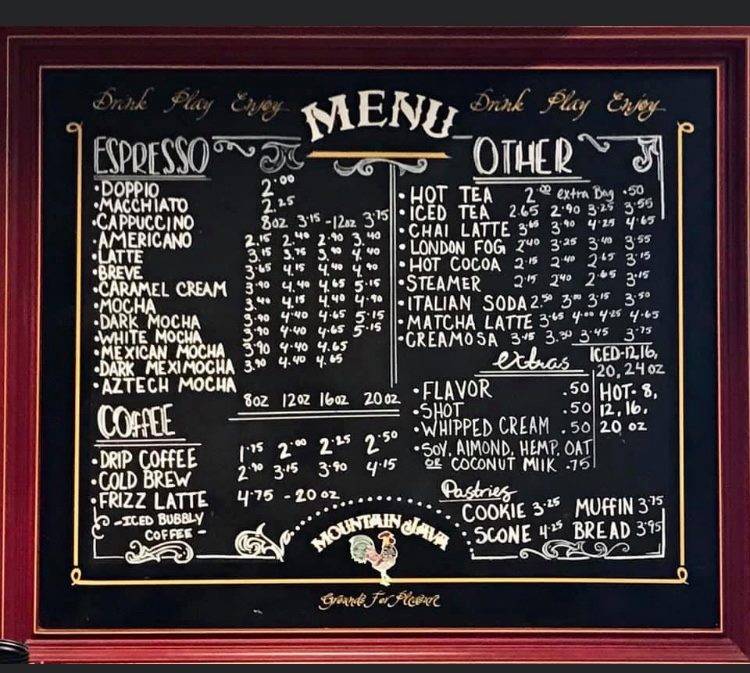 Drink Play Enjoy
MENU
Drink Play Enjoy
ESPRESSO
•DOPPIO 2.00
•MACCHIATO 2.25
•CAPPUCCINO 8oz 3.15 - 12oz 3.75
•AMERICANO 2.15 2.40 2.90 3.40
•LATTE 3.15 3.75 3.90 4.40
•BREVE 3.65 4.15 4.40 4.90
•CARAMEL CREAM 3.90 4.40 4.65 5.15
•MOCHA 3.40 4.15 4.40 4.90
•DARK MOCHA 3.90 4.40 4.65 5.15
•WHITE MOCHA 3.90 4.40 4.65 5.15
•MEXICAN MOCHA 3.90 4.40 4.65
•DARK MEXIMOCHA 3.90 4.40 4.65
•AZTECH MOCHA
8oz 12oz 16oz 20oz
COFFEE
•DRIP COFFEE 1.75 2.00 2.25 2.50
•COLD BREW 2.90 3.15 3.90 4.15
•FRIZZ LATTE 4.75 - 20 oz
-ICED BUBBLY
COFFEE-
OTHER
•HOT TEA 2.00 extra Bag .50
•ICED TEA 2.65 2.90 3.25 3.55
•CHAI LATTE 3.65 3.90 4.25 4.65
•LONDON FOG 2.40 3.25 3.40 3.55
•HOT COCOA 2.15 2.40 2.65 3.15
•STEAMER 2.15 2.40 2.65 3.15
•ITALIAN SODA 2.50 3.00 3.15 3.50
•MATCHA LATTE 3.65 4.00 4.25 4.65
•CREAMOSA 3.15 3.30 3.45 3.75
extras
•FLAVOR .50
•SHOT .50
•WHIPPED CREAM .50
•SOY, AlMOND, HEMP, OAT
OR COCONUT MIlK .75
ICED-12,16,
20, 24 OZ
HOT- 8,
12, 16,
20 OZ
Pastries
COOKIE 3.25 MUFFIN 3.75
SCONE 4.25 BREAD 3.95
MOUNTAIN JAVA
Grounds For Pleasure